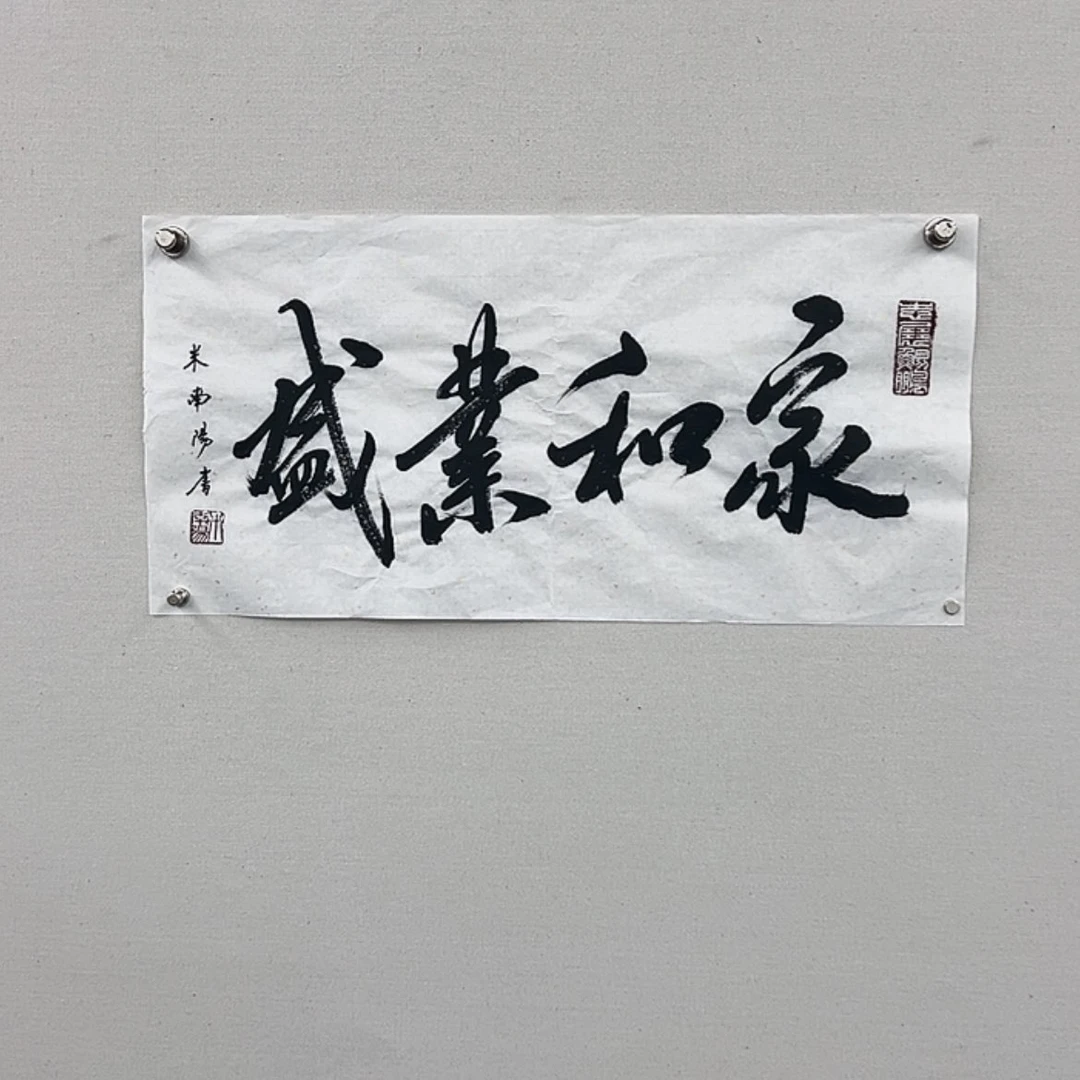 家和業盛
米南陽書